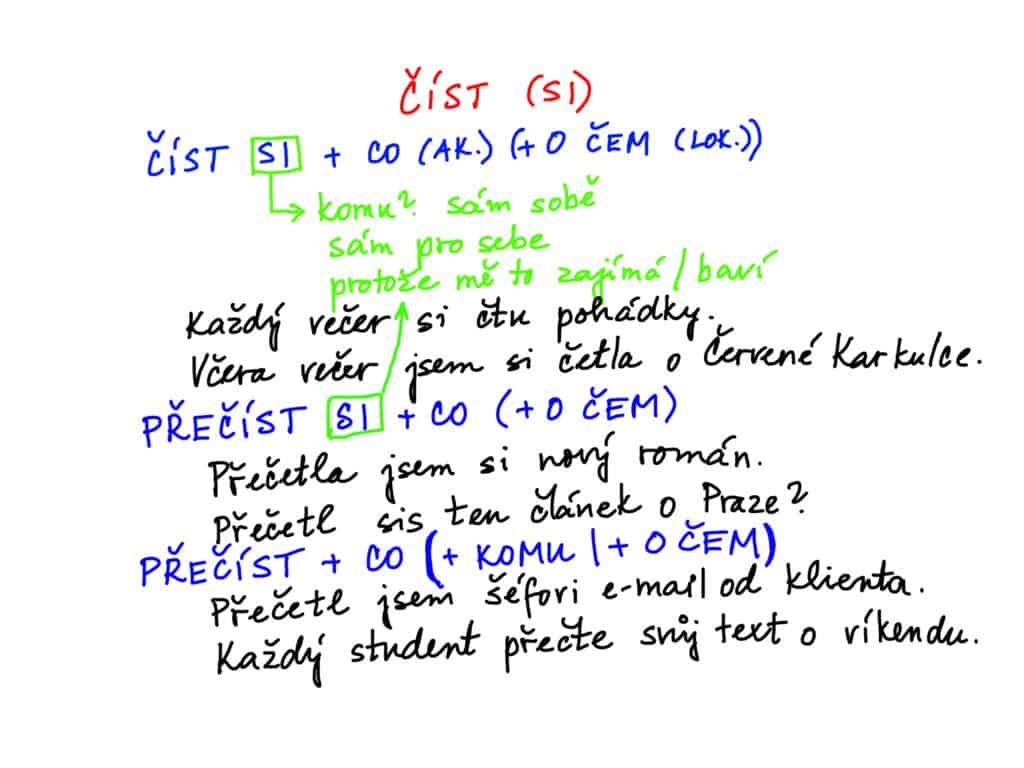 ČÍST (SI)
ČÍST SI + CO (AK.) (+ O ČEM (LOK.))
komu? sám sobě
sám pro sebe
protože mě to zajímá / baví
Každý večer si čtu pohádky.
Včera večer jsem si četla o Červené Karkulce.
PŘEČÍST SI + CO (+ O ČEM)
Přečetla jsem si nový román.
Přečetl sis ten článek o Praze?
PŘEČÍST + CO (+ KOMU | + O ČEM)
Přečetl jsem šéfovi e-mail od klienta.
Každý student přečte svůj text o víkendu.